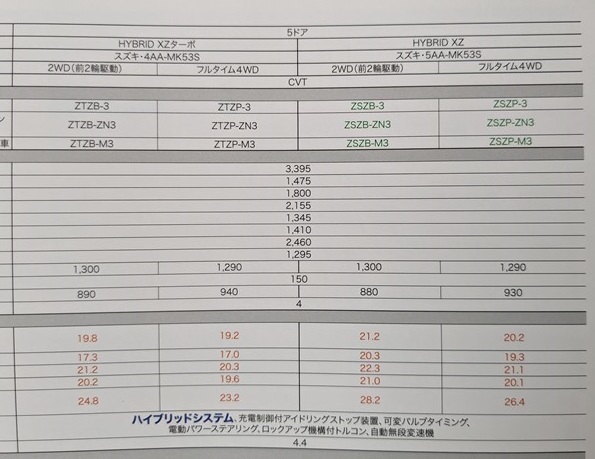 5ドア
HYBRID XZターボ HYBRID XZ
スズキ・4AA-MK53S スズキ・5AA-MK53S
2WD(前2輪駆動) フルタイム4WD 2WD(前2輪駆動) フルタイム4WD
CVT
ZTZB-3 ZTZP-3 ZSZB-3 ZSZP-3
ン ZTZB-ZN3 ZTZP-ZN3 ZSZB-ZN3 ZSZP-ZN3
車 ZTZB-M3 ZTZP-M3 ZSZB-M3 ZSZP-M3
3,395
1,475
1,800
2,155
1,345
1,410
2,460
1,295
1,300 1,290 1,300 1,290
150
890 940 880 930
4
19.8 19.2 21.2 20.2
17.3 17.0 20.3 19.3
21.2 20.3 22.3 21.1
20.2 19.6 21.0 20.1
24.8 23.2 28.2 26.4
ハイブリッドシステム、充電制御付アイドリングストップ装置、可変バルブタイミング、
電動パワーステアリング、ロックアップ機構付トルコン、自動無段変速機
4.4